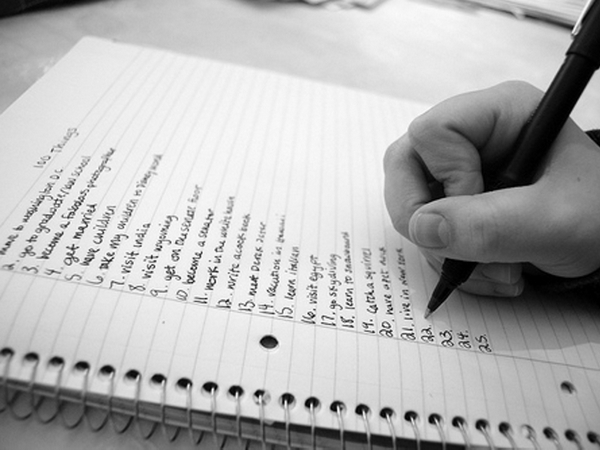 100 Things
move to washington D.C
2.
3. go to graduate/law school
4. become a fabulous photographer
5. get married
6. have children
7. take my children to disney world
8. visit india
9. visit wyoming
10. get on the senate floor
11. become a senator
12. work in the white house
13. write a cook book
14. meet Derek Jeter
15. vacation in
16. learn italian
17. visit Egypt
18. go skydiving
19. learn to snowboard
20. catch a squirrel
21. have a pet
22. live in new york
23.
24.
25.